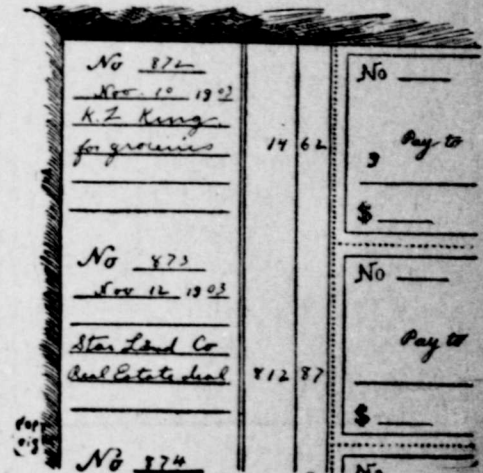 No 872
Nov. 10 1903
K. Z King.
for groceries 14 62
No 873
Nov 12 1903
Star Land Co
Real Estate deal 812 87
No 874
No
Pay to
$
No
Pay to
$
No